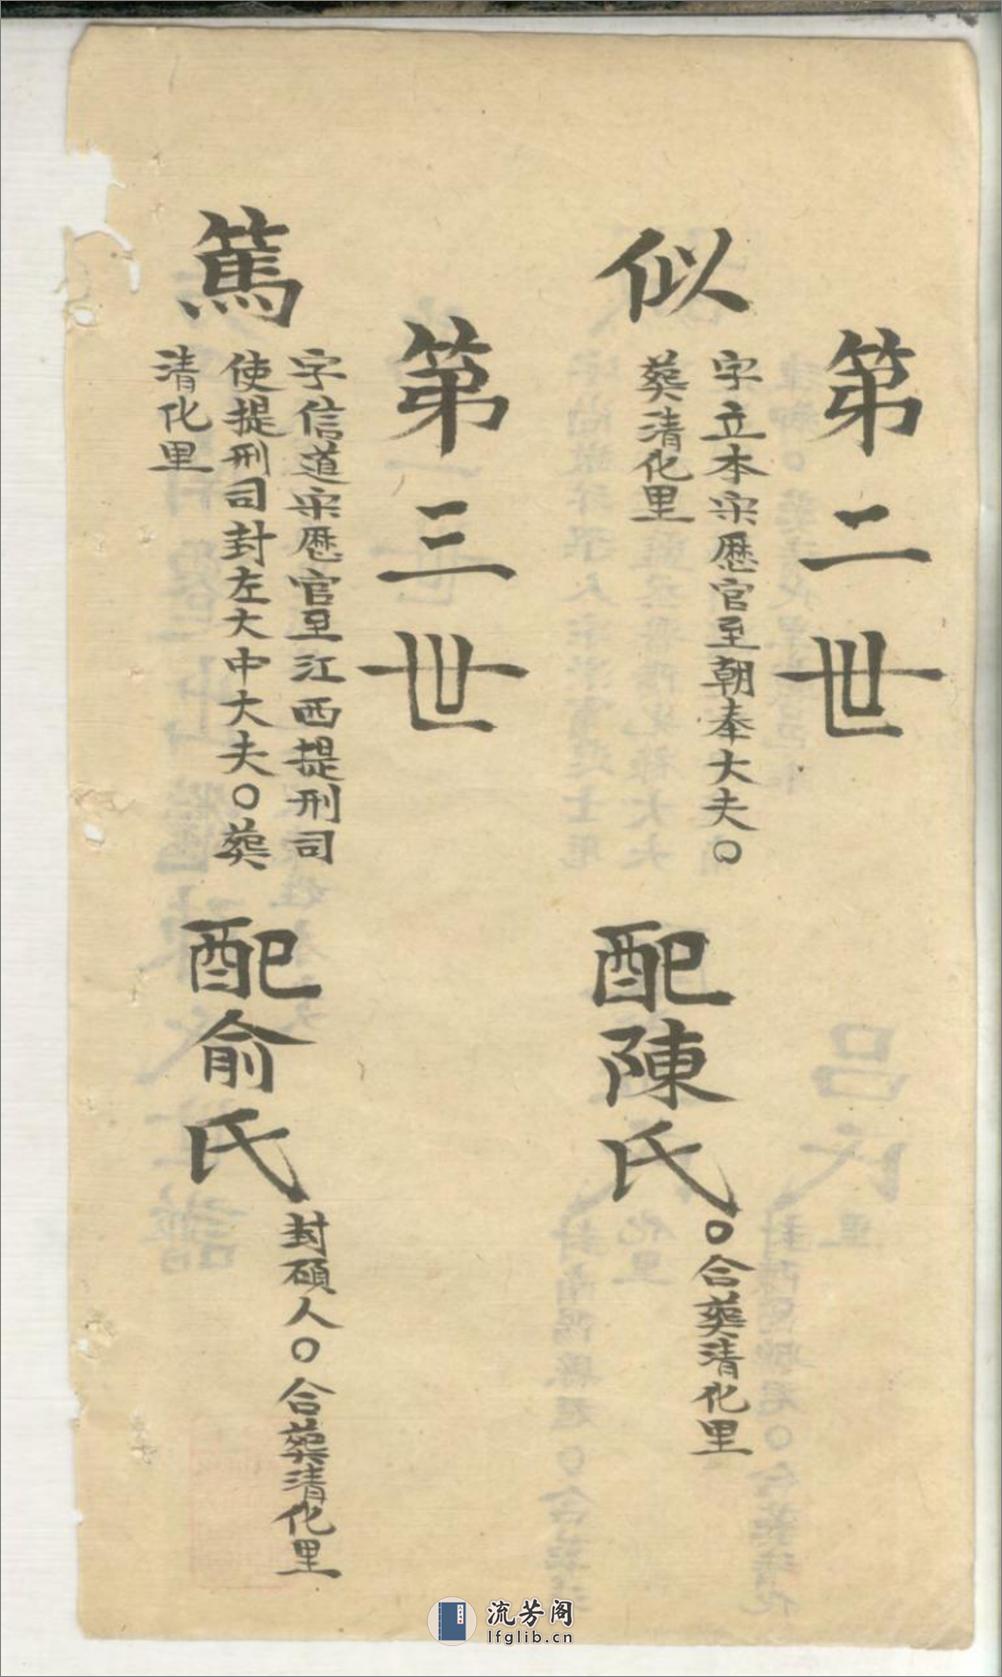 第二世
似
字立本宋歷官至朝奉大夫〇
葬清化里
配陳氏
〇合葬清化里
第三世
篤
字信道宋歷官至江西提刑司
使提刑司封左大中大夫〇葬
清化里
配俞氏
封碩人〇合葬清化里
流芳阁
lfglib.cn